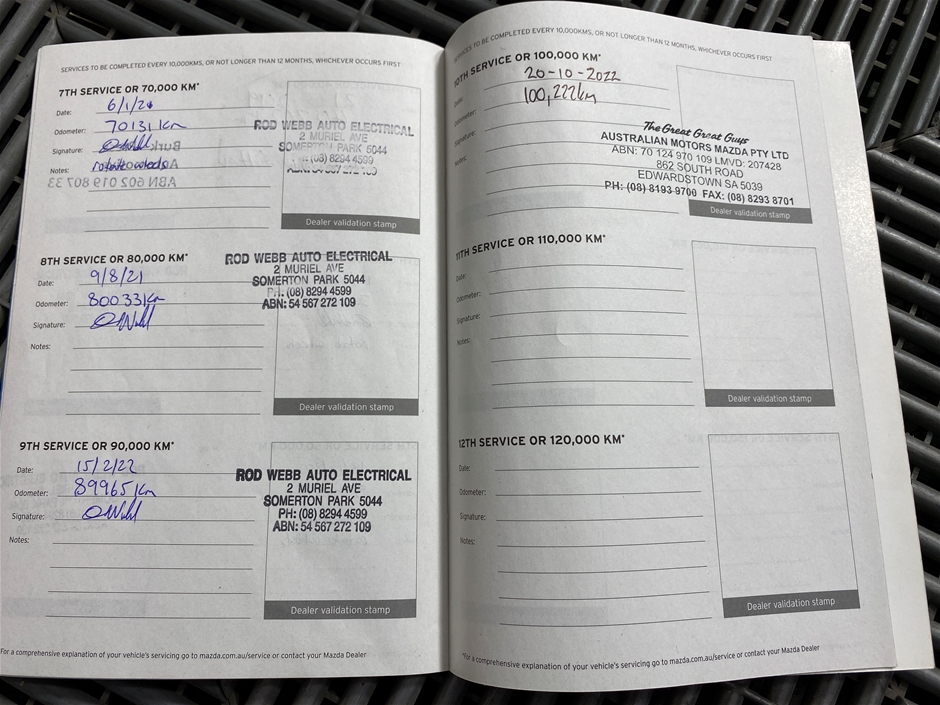 SERVICES TO BE COMPLETED EVERY 10,000KMS, OR NOT LONGER THAN 12 MONTHS, WHICHEVER OCCURS FIRST
7TH SERVICE OR 70,000 KM*
Date:
Odometer: 70131 km
Signature:
Notes:
ROD WEBB AUTO ELECTRICAL
2 MURIEL AVE
SOMERTON PARK 5044
(08) 8294 4599
ABN 602 019 807 33
Dealer validation stamp
8TH SERVICE OR 80,000 KM*
Date: 9/8/21
Odometer: 80033 km
Signature:
Notes:
ROD WEBB AUTO ELECTRICAL
2 MURIEL AVE
SOMERTON PARK 5044
PH: (08) 8294 4599
ABN: 54 567 272 109
Dealer validation stamp
9TH SERVICE OR 90,000 KM*
Date: 15/2/22
Odometer: 89965 km
Signature:
Notes:
ROD WEBB AUTO ELECTRICAL
2 MURIEL AVE
SOMERTON PARK 5044
PH: (08) 8294 4599
ABN: 54 567 272 109
Dealer validation stamp
For a comprehensive explanation of your vehicle's servicing go to mazda.com.au/service or contact your Mazda Dealer
SERVICES TO BE COMPLETED EVERY 10,000KMS, OR NOT LONGER THAN 12 MONTHS, WHICHEVER OCCURS FIRST
10TH SERVICE OR 100,000 KM*
Date: 20-10-2022
Odometer: 100,222km
Signature:
Notes:
The Great Great Guys
AUSTRALIAN MOTORS MAZDA PTY LTD
ABN: 70 124 970 109 LMVD: 207428
862 SOUTH ROAD
EDWARDSTOWN SA 5039
PH: (08) 8193 9700 FAX: (08) 8293 8701
Dealer validation stamp
11TH SERVICE OR 110,000 KM*
Date:
Odometer:
Signature:
Notes:
Dealer validation stamp
12TH SERVICE OR 120,000 KM*
Date:
Odometer:
Signature:
Notes:
Dealer validation stamp
*For a comprehensive explanation of your vehicle's servicing go to mazda.com.au/service or contact your Mazda Dealer